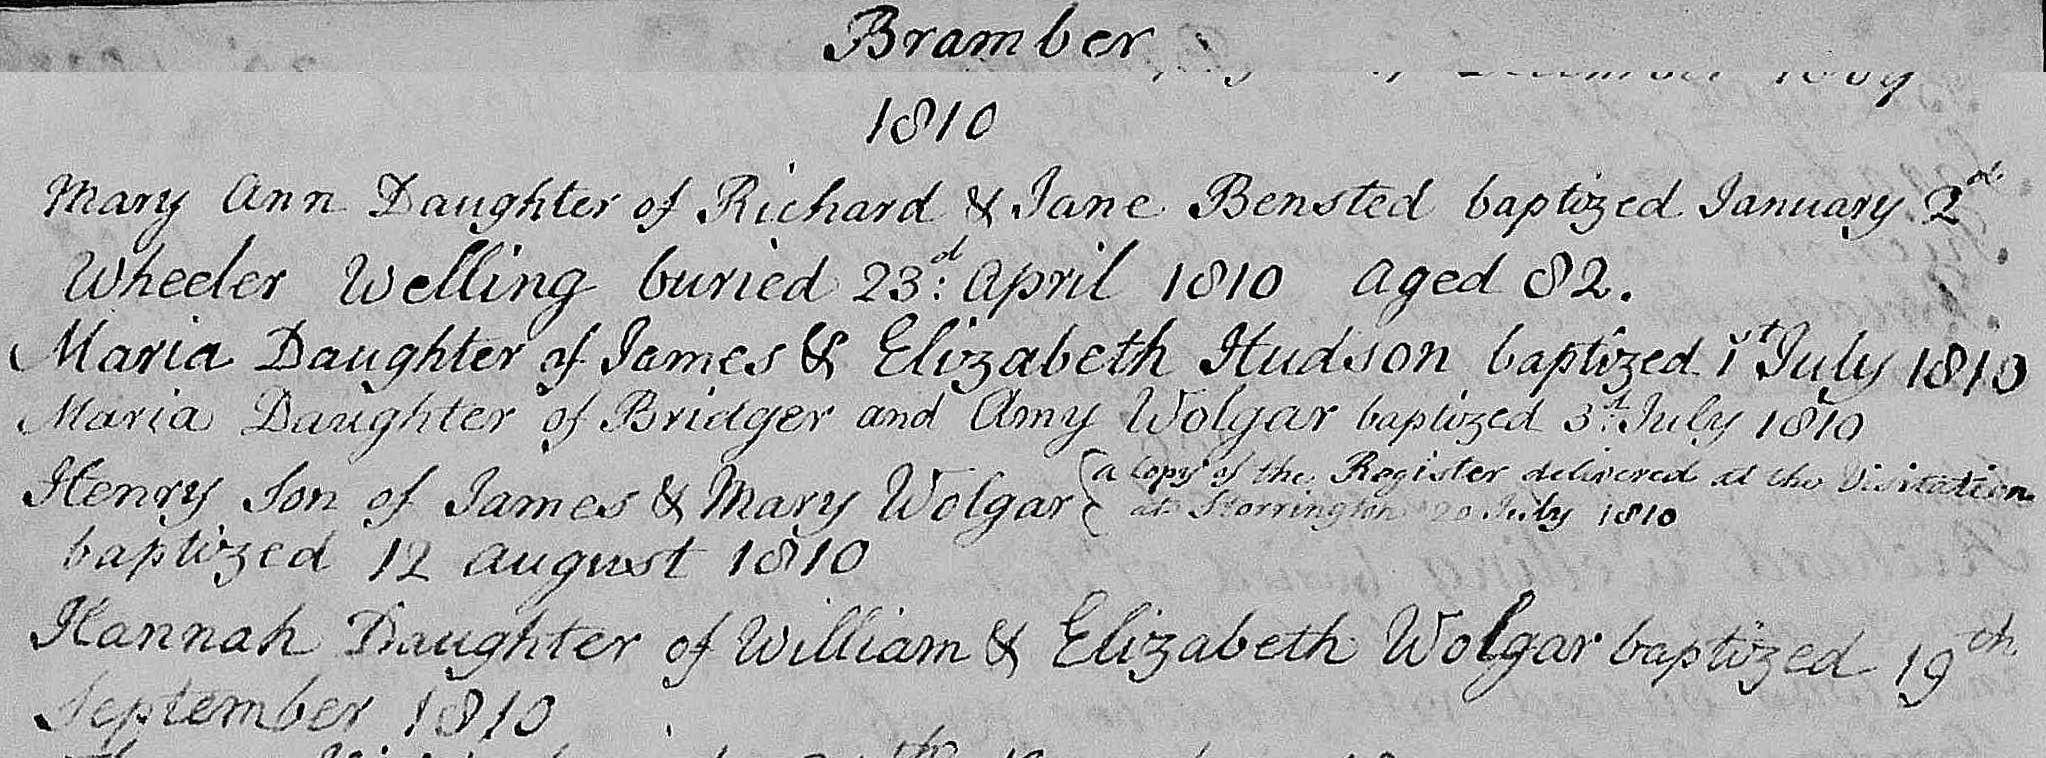 Bramber
December 1809
1810
Mary Ann Daughter of Richard & Jane Bensted baptized January 2d
Wheeler Welling buried 23d: April 1810 aged 82.
Maria Daughter of James & Elizabeth Hudson baptized 1st July 1810
Maria Daughter of Bridger and Amy Wolgar baptized 3d. July 1810
Henry Son of James & Mary Wolgar { a Copy of the Register delivered at the Visitation
at Storrington 20 July 1810
baptized 12 August 1810
Hannah Daughter of William & Elizabeth Wolgar baptized 19th.
September 1810